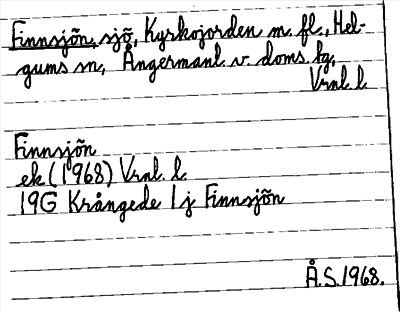 Finnsjön, sjö, Kyrkojorden m. fl., Hel-
gums sn, Ångermanl. v. doms. hg,
Vrnl. l.
Finnsjön
ek (1968) Vrnl. l.
19G Krångede 1 j Finnsjön
Å.S. 1968.